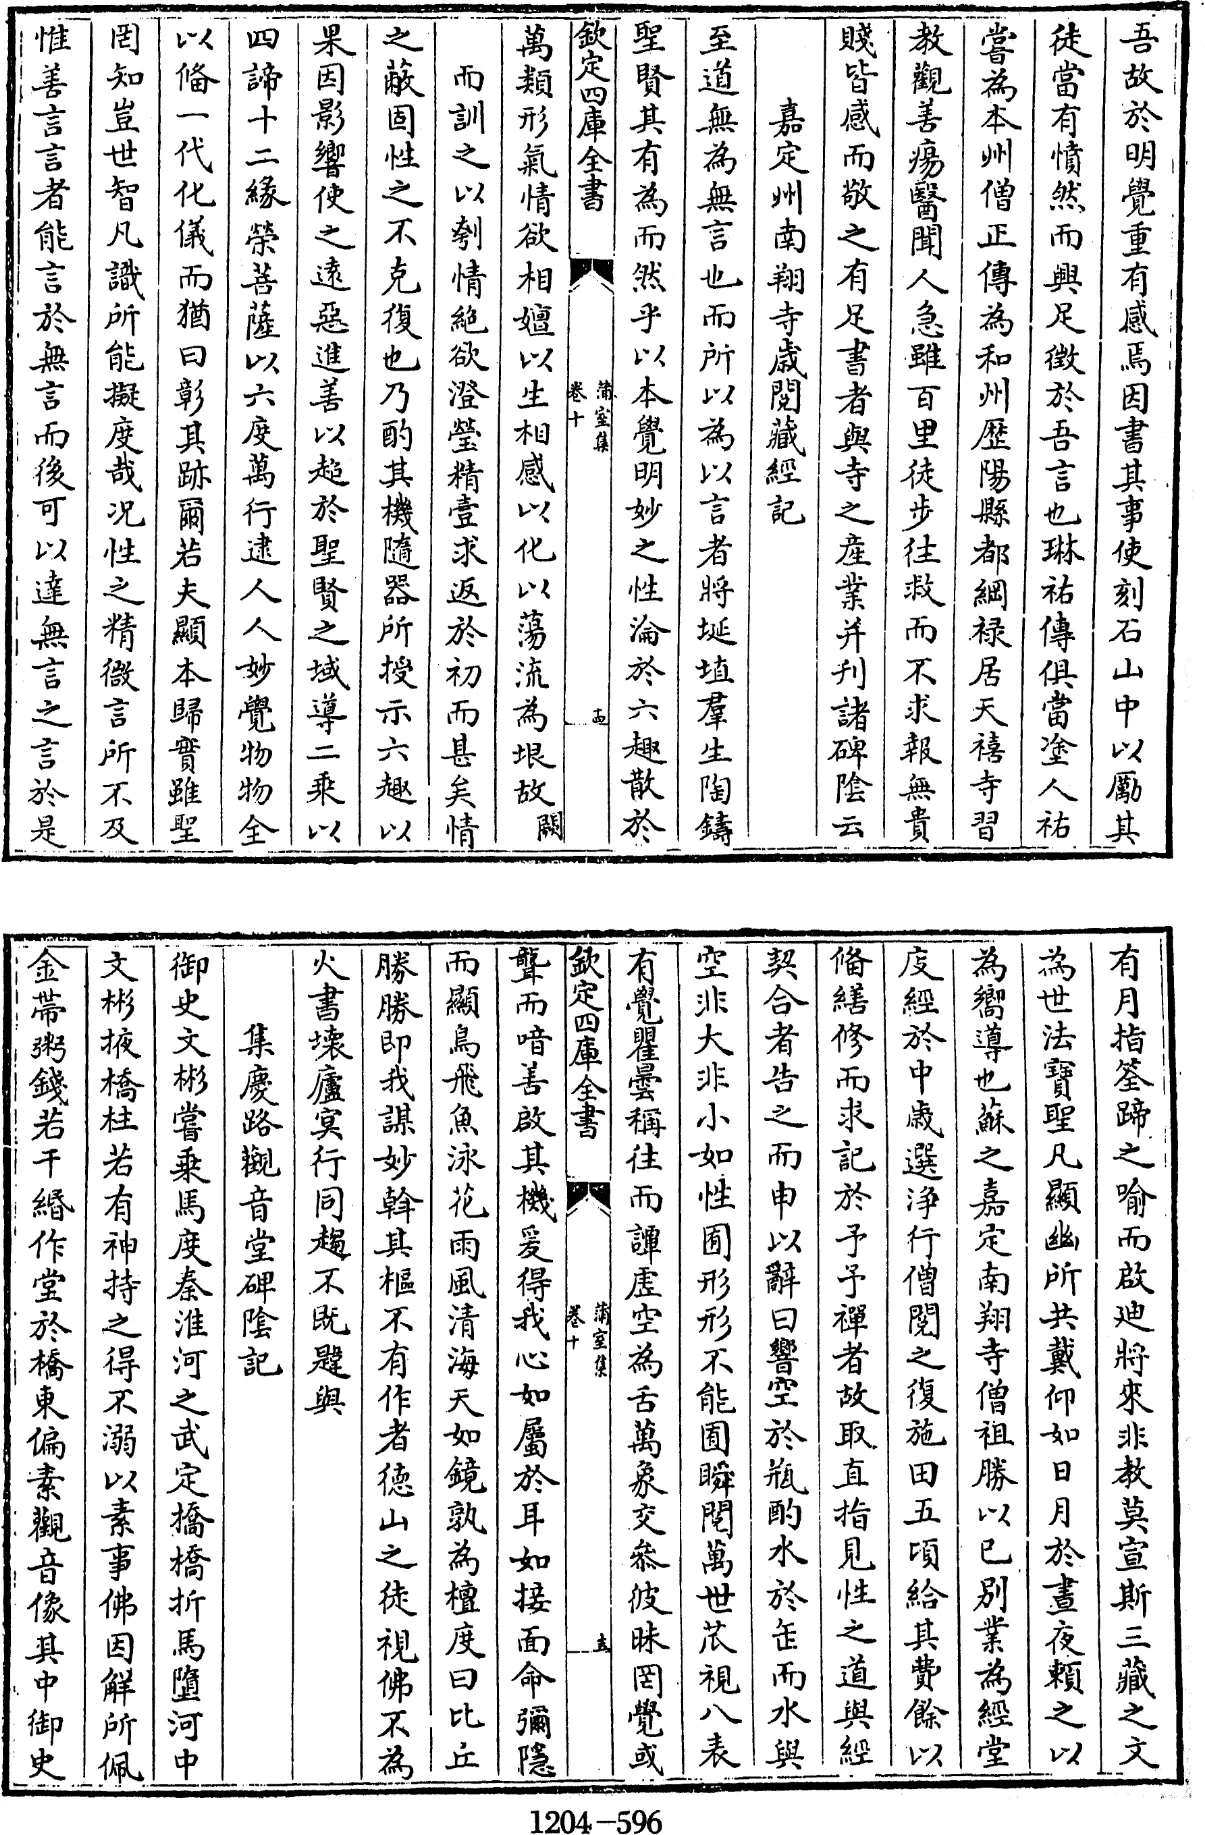 吾故於明覺重有感焉因書其事使刻石山中以勵其
徒當有憤然而興足徴於吾言也琳祐傳俱當塗人祐
嘗為本州僧正傳為和州歴陽縣都綱禄居天禧寺習
教觀善瘍醫聞人急雖百里徒步往救而不求報無貴
賤皆感而敬之有足書者與寺之産業并刋諸碑隂云
嘉定州南翔寺歳閲藏經記
至道無為無言也而所以為以言者將埏埴羣生陶鑄
聖賢其有為而然乎以本覺明妙之性淪於六趣散於
欽定四庫全書
蒲室集
卷十
萬類形氣情欲相嬗以生相感以化以蕩流為垠故闕
而訓之以剗情絶欲澄瑩精壹求返於初而甚矣情
之蔽固性之不克復也乃酌其機隨器所授示六趣以
果因影響使之逺惡進善以超於聖賢之域導二乘以
四諦十二緣榮菩薩以六度萬行逮人人妙覺物物全
以備一代化儀而猶曰彰其跡爾若夫顯本歸實雖聖
罔知豈世智凡識所能擬度哉况性之精微言所不及
惟善言言者能言於無言而後可以達無言之言於是
有月指筌蹄之喻而啟迪將來非教莫宣斯三藏之文
為世法寶聖凡顯幽所共戴仰如日月於晝夜頼之以
為嚮導也蘇之嘉定南翔寺僧祖勝以已別業為經堂
庋經於中歳選淨行僧閲之復施田五頃給其費餘以
備繕修而求記於予予禪者故取直指見性之道與經
契合者告之而申以辭曰響空於瓶酌水於缶而水與
空非大非小如性囿形形不能囿瞬閲萬世茫視八表
有覺瞿曇稱往而譚虚空為舌萬象交叅彼昧罔覺或
欽定四庫全書
蒲室集
卷十
聾而喑善啟其機爰得我心如屬於耳如接面命彌隱
而顯鳥飛魚泳花雨風清海天如鏡孰為檀度曰比丘
勝勝即我謀妙斡其樞不有作者德山之徒視佛不為
火書壊廬冥行同趨不既韙與
集慶路觀音堂碑隂記
御史文彬嘗乘馬度秦淮河之武定橋橋折馬墮河中
文彬掖橋柱若有神持之得不溺以素事佛因解所佩
金帶粥錢若干緡作堂於橋東偏素觀音像其中御史
1204-596